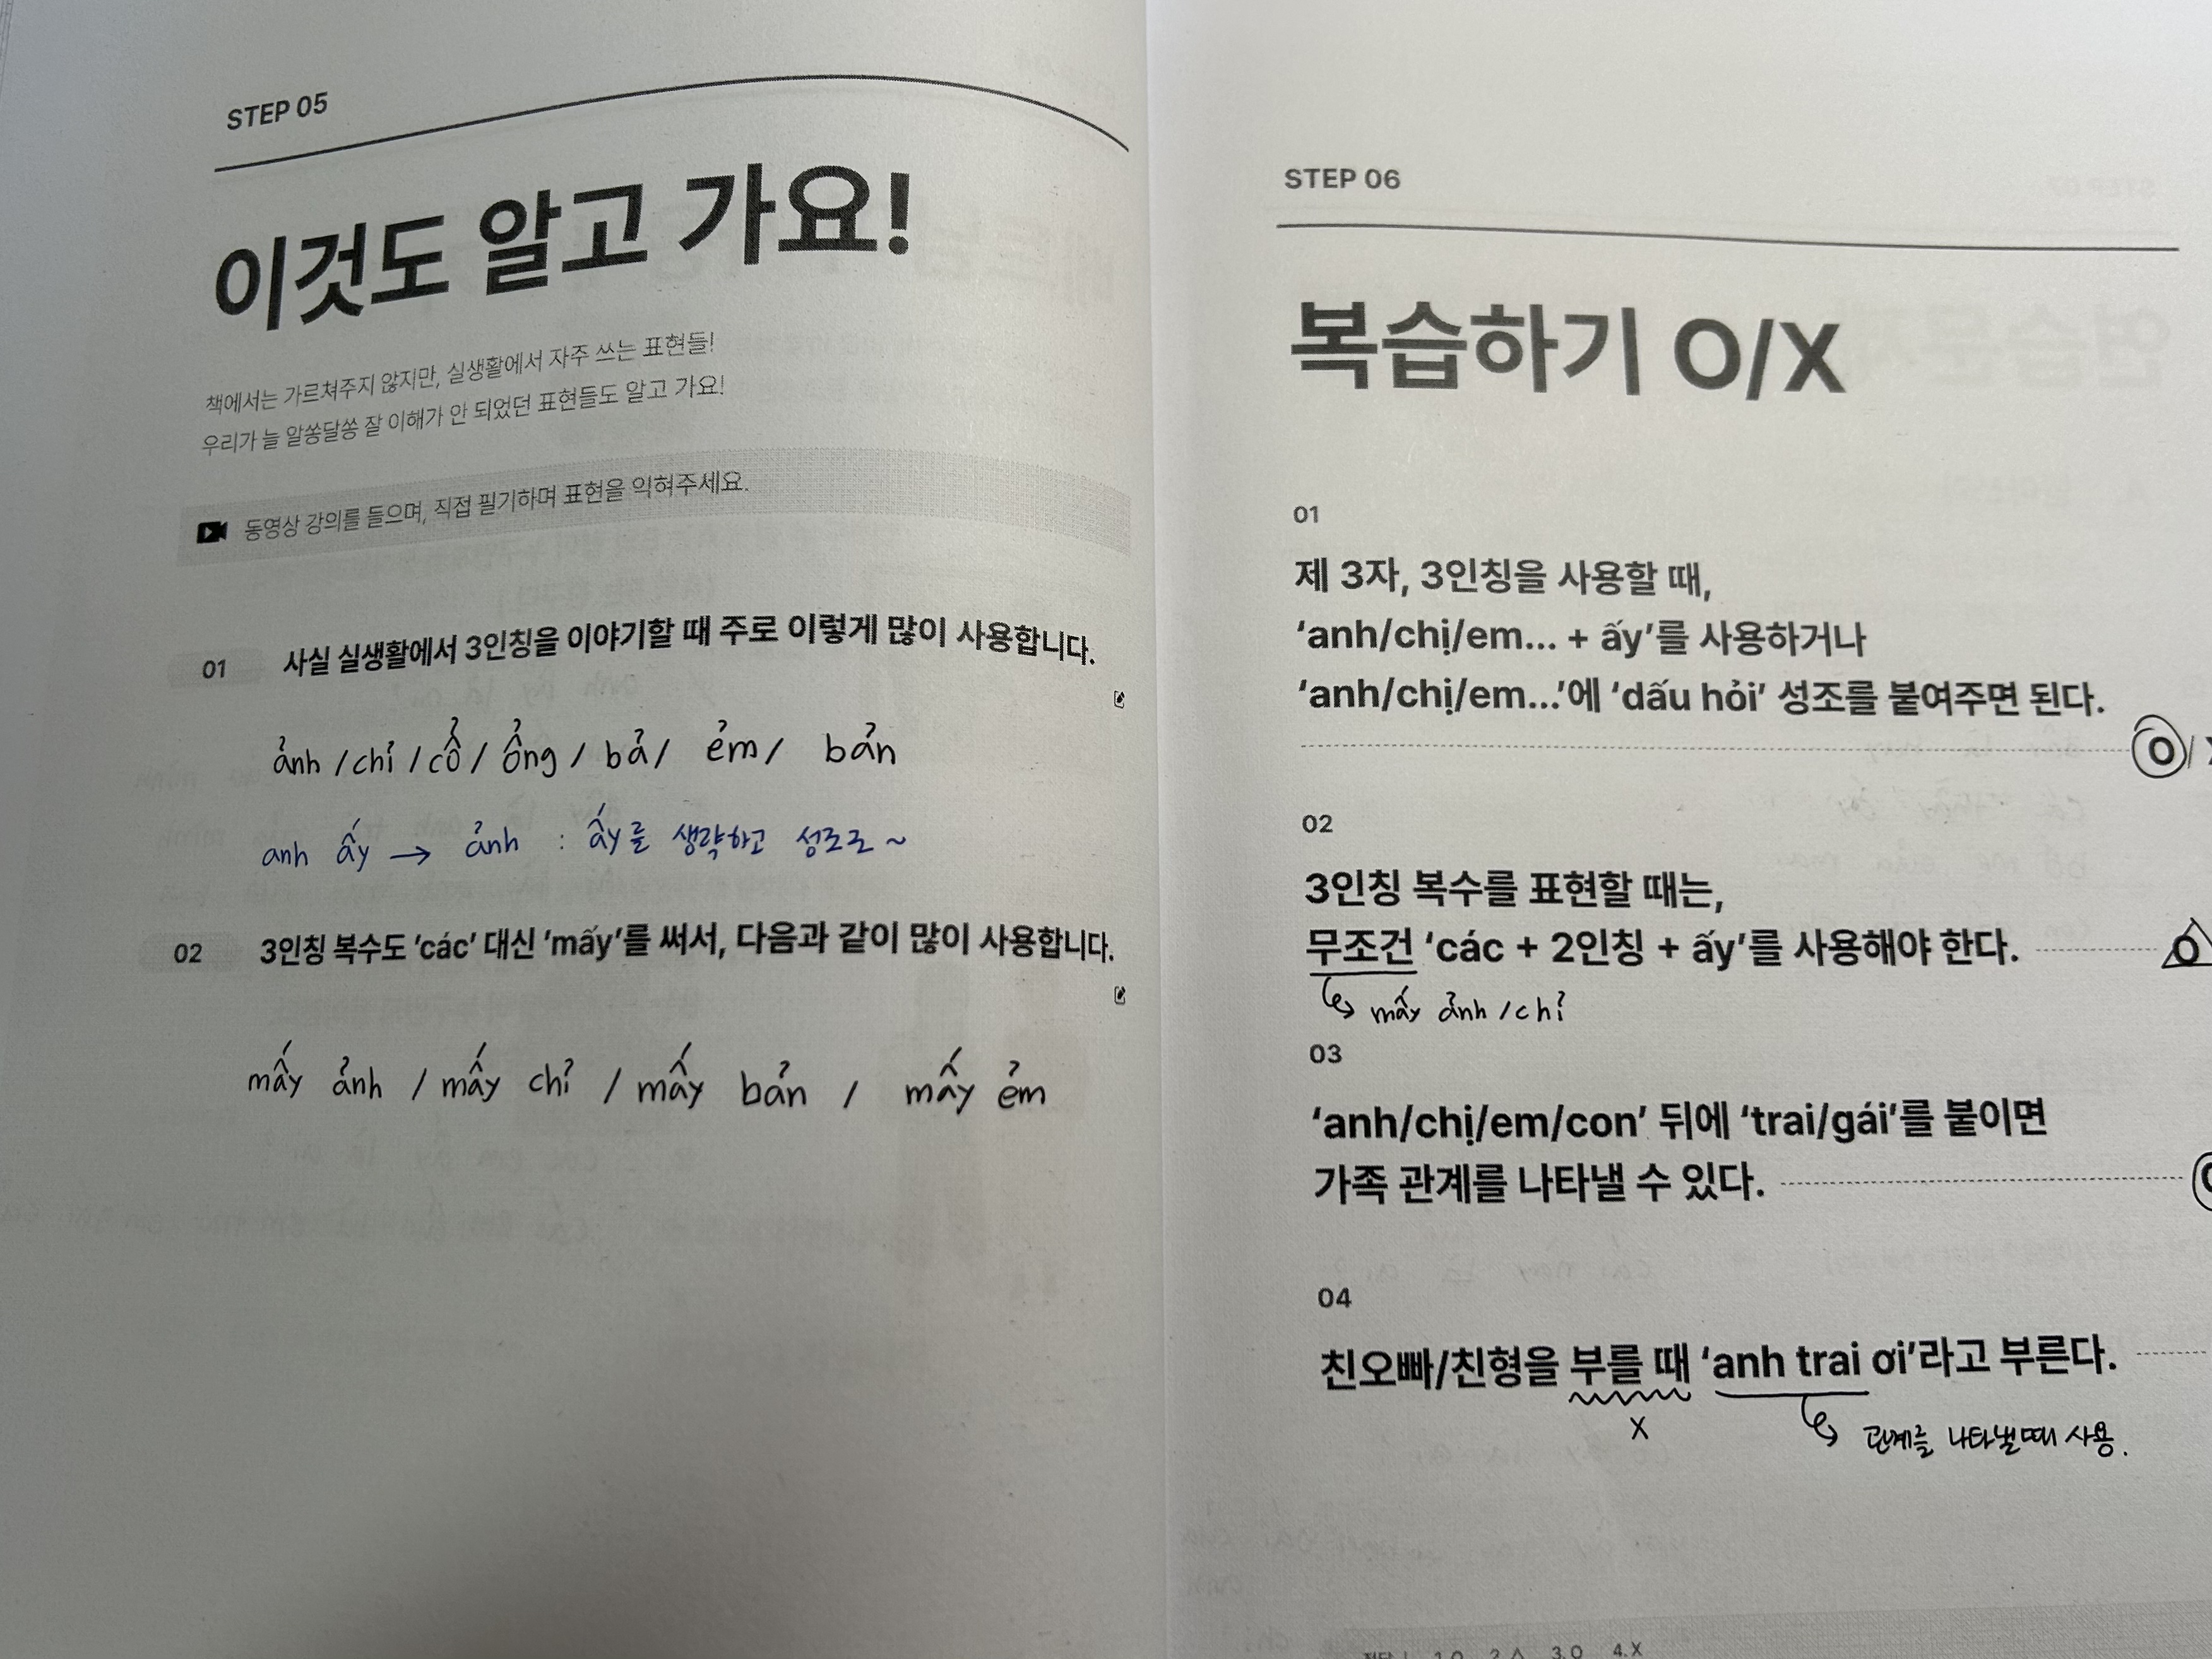 STEP 05
이것도 알고 가요!
책에서는 가르쳐주지 않지만, 실생활에서 자주 쓰는 표현들!
우리가 늘 알쏭달쏭 잘 이해가 안 되었던 표현들도 알고 가요!
동영상 강의를 들으며, 직접 필기하며 표현을 익혀주세요.
01 사실 실생활에서 3인칭을 이야기할 때 주로 이렇게 많이 사용합니다.
ảnh / chỉ / cổ / ổng / bả / ẻm / bản
anh ấy → ảnh : ấy를 생략하고 성조로 ~
02 3인칭 복수도 ‘các’ 대신 ‘mấy’를 써서, 다음과 같이 많이 사용합니다.
mấy ảnh / mấy chỉ / mấy bản / mấy ẻm
STEP 06
복습하기 O/X
01
제 3자, 3인칭을 사용할 때,
‘anh/chị/em... + ấy’를 사용하거나
‘anh/chị/em...’에 ‘dấu hỏi’ 성조를 붙여주면 된다.
O /
02
3인칭 복수를 표현할 때는,
무조건 ‘các + 2인칭 + ấy’를 사용해야 한다. O
mấy ảnh / chỉ
03
‘anh/chị/em/con’ 뒤에 ‘trai/gái’를 붙이면
가족 관계를 나타낼 수 있다.
04
친오빠/친형을 부를 때 ‘anh trai ơi’라고 부른다.
X 관계를 나타낼때 사용.
1.O 2.△ 3.O 4.X